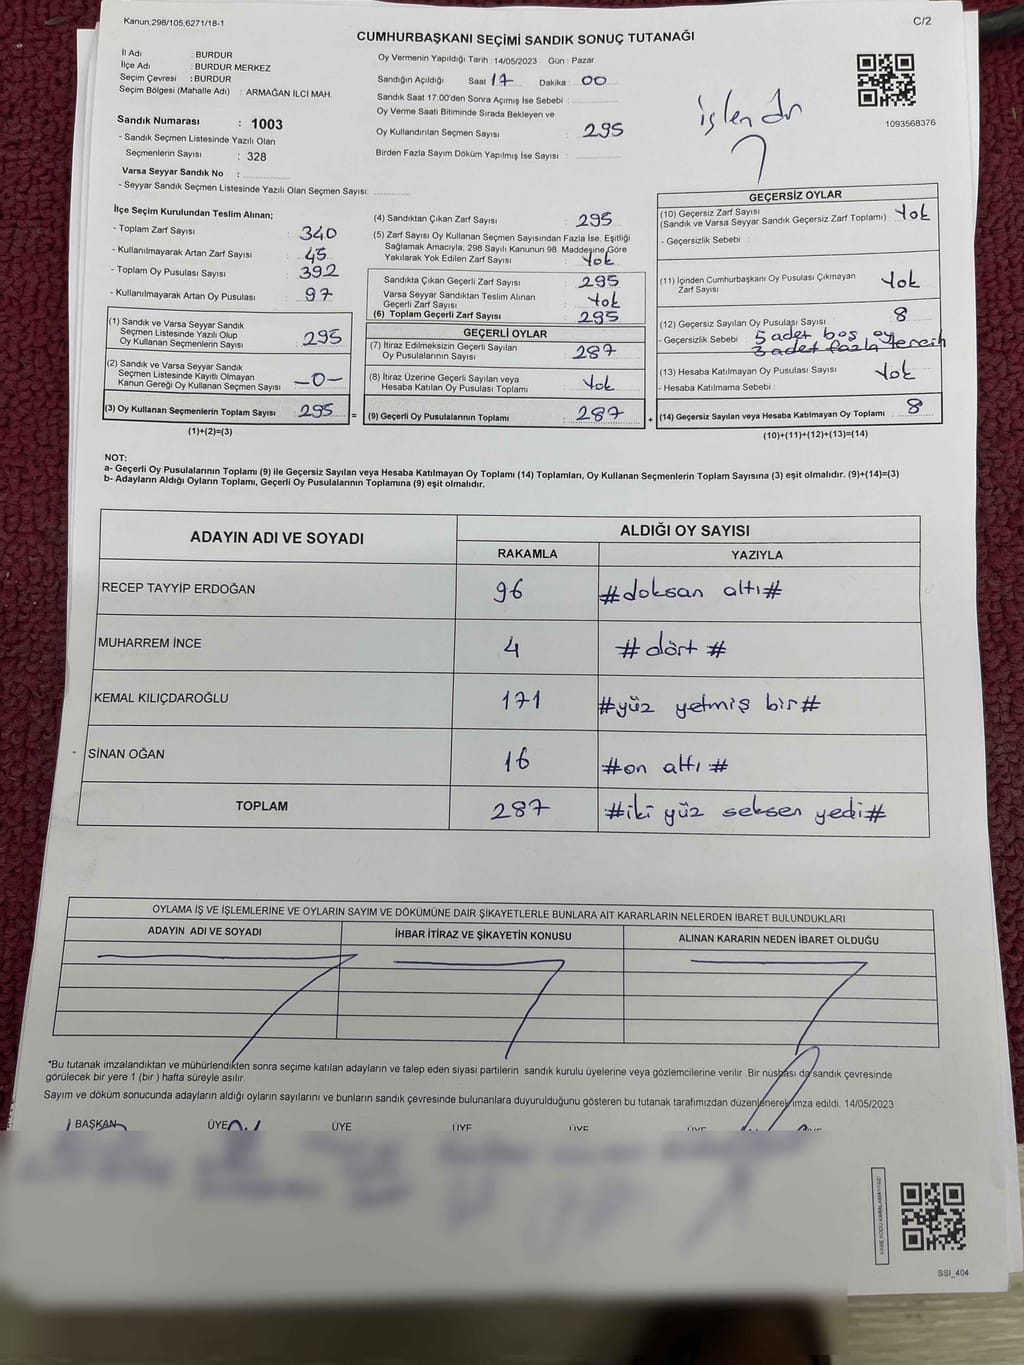 Kanun.298/105,6271/18-1
C/2
CUMHURBAŞKANI SEÇİMİ SANDIK SONUÇ TUTANAĞI
İl Adı : BURDUR
İlçe Adı : BURDUR MERKEZ
Seçim Çevresi : BURDUR
Seçim Bölgesi (Mahalle Adı) : ARMAĞAN İLCİ MAH.
Oy Vermenin Yapıldığı Tarih : 14/05/2023 Gün : Pazar
Sandığın Açıldığı Saat 17 Dakika : 00
Sandık Saat 17.00'den Sonra Açımış İse Sebebi :
Oy Verme Saati Bitiminde Sırada Bekleyen ve
Oy Kullandırılan Seçmen Sayısı : 295
Birden Fazla Sayım Döküm Yapılmış İse Sayısı :
işlendi
1093568376
Sandık Numarası : 1003
- Sandık Seçmen Listesinde Yazılı Olan
Seçmenlerin Sayısı : 328
Varsa Seyyar Sandık No :
- Seyyar Sandık Seçmen Listesinde Yazılı Olan Seçmen Sayısı:
İlçe Seçim Kurulundan Teslim Alınan;
- Toplam Zarf Sayısı : 340
- Kullanılmayarak Artan Zarf Sayısı : 45
- Toplam Oy Pusulası Sayısı : 392
- Kullanılmayarak Artan Oy Pusulası : 97
(1) Sandık ve Varsa Seyyar Sandık
Seçmen Listesinde Yazılı Olup
Oy Kullanan Seçmenlerin Sayısı : 295
(2) Sandık ve Varsa Seyyar Sandık
Seçmen Listesinde Kayıtlı Olmayan
Kanun Gereği Oy Kullanan Seçmen Sayısı —0—
(3) Oy Kullanan Seçmenlerin Toplam Sayısı : 295 =
(1)+(2)=(3)
(4) Sandıktan Çıkan Zarf Sayısı : 295
(5) Zarf Sayısı Oy Kullanan Seçmen Sayısından Fazla İse, Eşitliği
Sağlamak Amacıyla, 298 Sayılı Kanunun 98. Maddesine Göre
Yakılarak Yok Edilen Zarf Sayısı : Yok
Sandıkta Çıkan Geçerli Zarf Sayısı : 295
Varsa Seyyar Sandıktan Teslim Alınan
Geçerli Zarf Sayısı : Yok
(6) Toplam Geçerli Zarf Sayısı : 295
GEÇERLİ OYLAR
(7) İtiraz Edilmeksizin Geçerli Sayılan
Oy Pusulasının Sayısı : 287
(8) İtiraz Üzerine Geçerli Sayılan veya
Hesaba Katılan Oy Pusulası Toplamı : Yok
(9) Geçerli Oy Pusulalarının Toplamı : 287 +
GEÇERSİZ OYLAR
(10) Geçersiz Zarf Sayısı
(Sandık ve Varsa Seyyar Sandık Geçersiz Zarf Toplamı) : Yok
- Geçersizlik Sebebi :
(11) İçinden Cumhurbaşkanı Oy Pusulası Çıkmayan
Zarf Sayısı : Yok
(12) Geçersiz Sayılan Oy Pusulası Sayısı : 8
- Geçersizlik Sebebi : 5 adet boş oy
3 adet fazla tercih
(13) Hesaba Katılmayan Oy Pusulası Sayısı : Yok
- Hesaba Katılmama Sebebi :
(14) Geçersiz Sayılan veya Hesaba Katılmayan Oy Toplamı : 8
(10)+(11)+(12)+(13)=(14)
NOT:
a- Geçerli Oy Pusulalarının Toplamı (9) ile Geçersiz Sayılan veya Hesaba Katılmayan Oy Toplamı (14) Toplamları, Oy Kullanan Seçmenlerin Toplam Sayısına (3) eşit olmalıdır. (9)+(14)=(3)
b- Adayların Aldığı Oyların Toplamı, Geçerli Oy Pusulalarının Toplamına (9) eşit olmalıdır.
ADAYIN ADI VE SOYADI
ALDIĞI OY SAYISI
RAKAMLA YAZIYLA
RECEP TAYYİP ERDOĞAN 96 #doksan altı#
MUHARREM İNCE 4 #dört#
KEMAL KILIÇDAROĞLU 171 #yüz yetmiş bir#
SİNAN OĞAN 16 #on altı#
TOPLAM 287 #iki yüz seksen yedi#
OYLAMA İŞ VE İŞLEMLERİNE VE OYLARIN SAYIM VE DÖKÜMÜNE DAİR ŞİKAYETLERLE BUNLARA AİT KARARLARIN NELERDEN İBARET BULUNDUKLARI
ADAYIN ADI VE SOYADI İHBAR İTİRAZ VE ŞİKAYETİN KONUSU ALINAN KARARIN NEDEN İBARET OLDUĞU
*Bu tutanak imzalandıktan ve mühürlendikten sonra seçime katılan adayların ve talep eden siyasi partilerin sandık kurulu üyelerine veya gözlemcilerine verilir .Bir nüshası da sandık çevresinde
görülecek bir yere 1 (bir ) hafta süreyle asılır.
Sayım ve döküm sonucunda adayların aldığı oyların sayılarını ve bunların sandık çevresinde bulunanlara duyurulduğunu gösteren bu tutanak tarafımızdan düzenlenerek imza edildi. 14/05/2023
BAŞKAN ÜYE ÜYE ÜYE ÜYE ÜYE
SSI_404